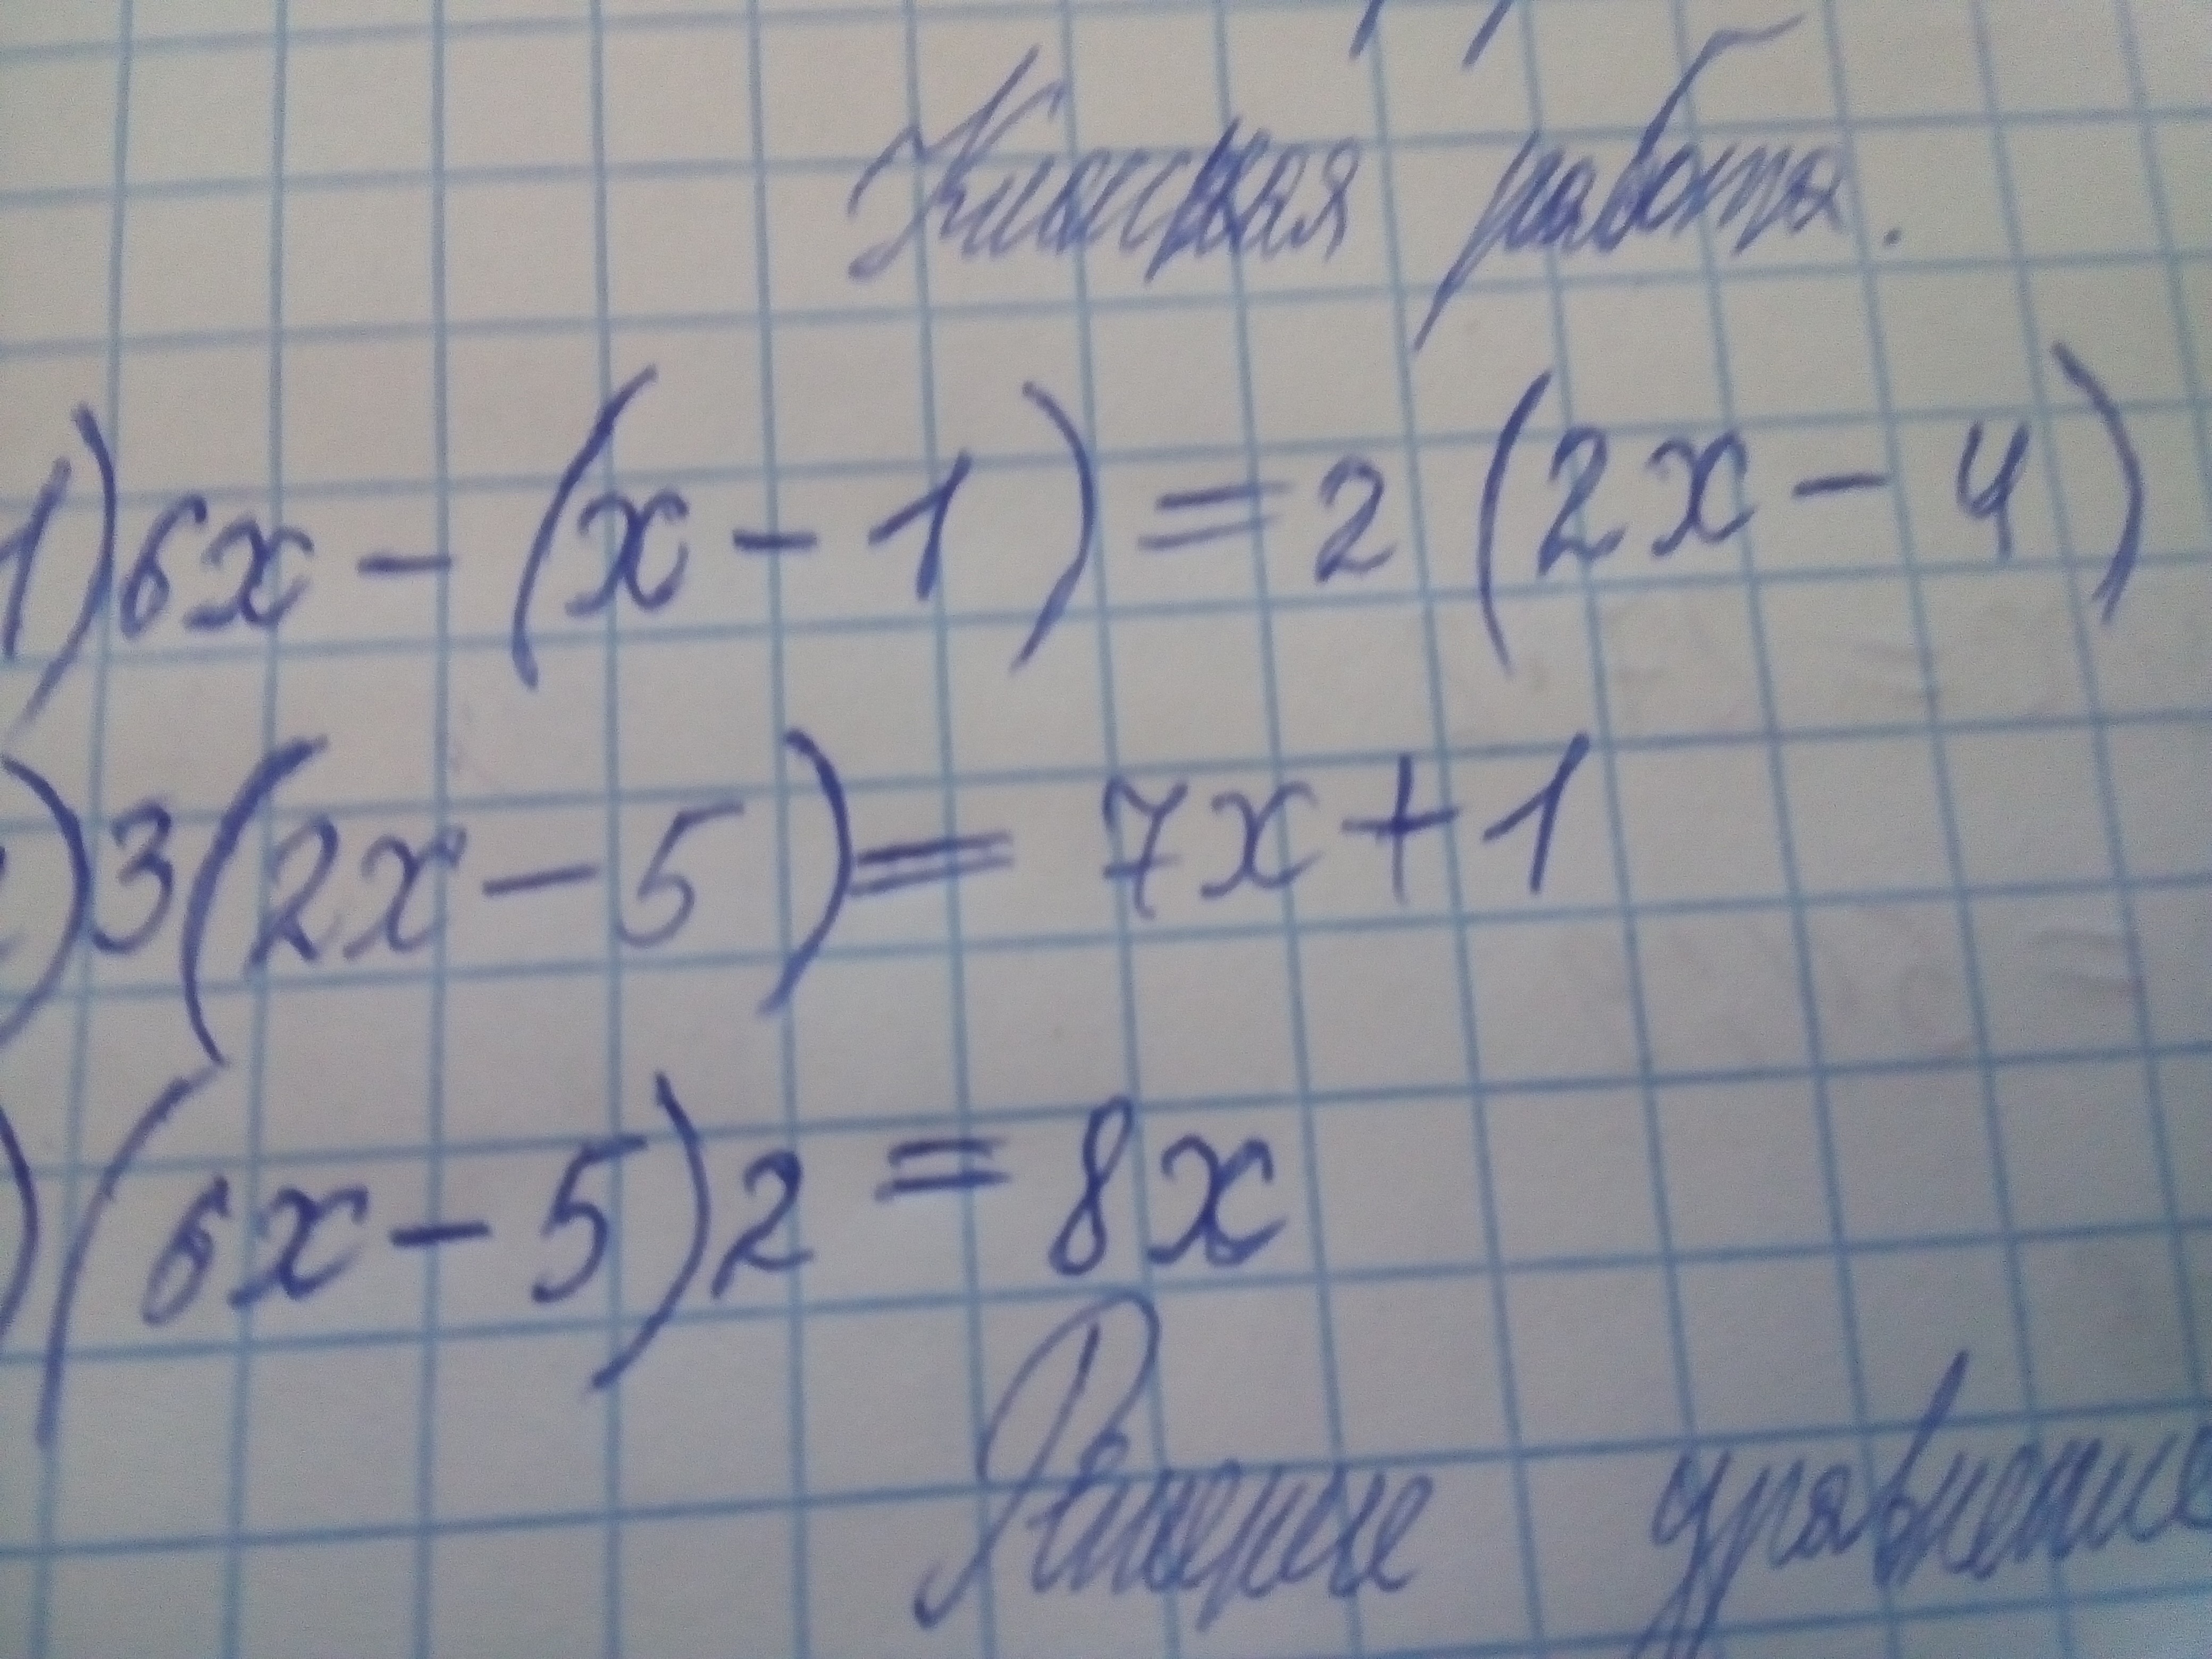 Классная работа.
1) 6x - (x - 1) = 2 (2x - 4)
) 3 (2x - 5) = 7x + 1
) (6x - 5) 2 = 8x
Решение уравнение